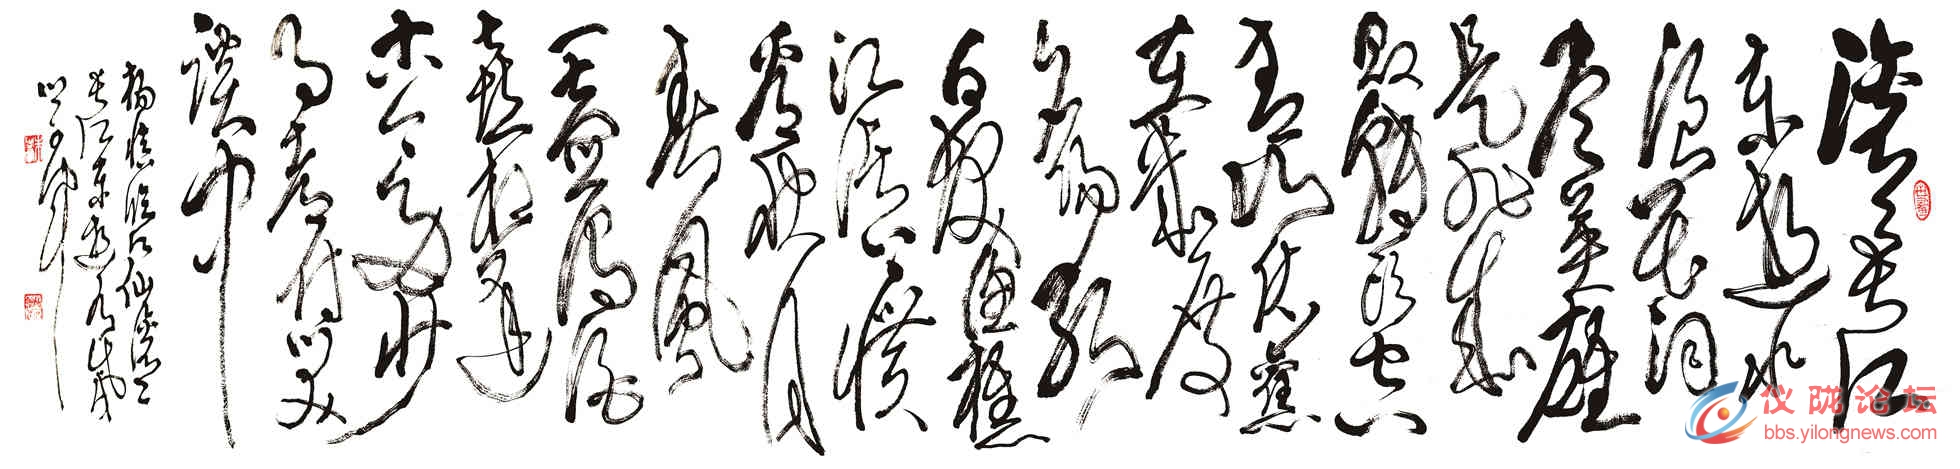 滚滚长江
东逝水
浪花淘
尽英雄
是非成
败转头空
青山依旧
在几度
夕阳红
白发渔樵
江渚上惯
看秋月
春风
一壶浊酒
喜相逢
古今多少
事都付笑
谈中
杨慎临江仙滚滚
长江东逝水
仪陇论坛
bbs.yilongnews.com